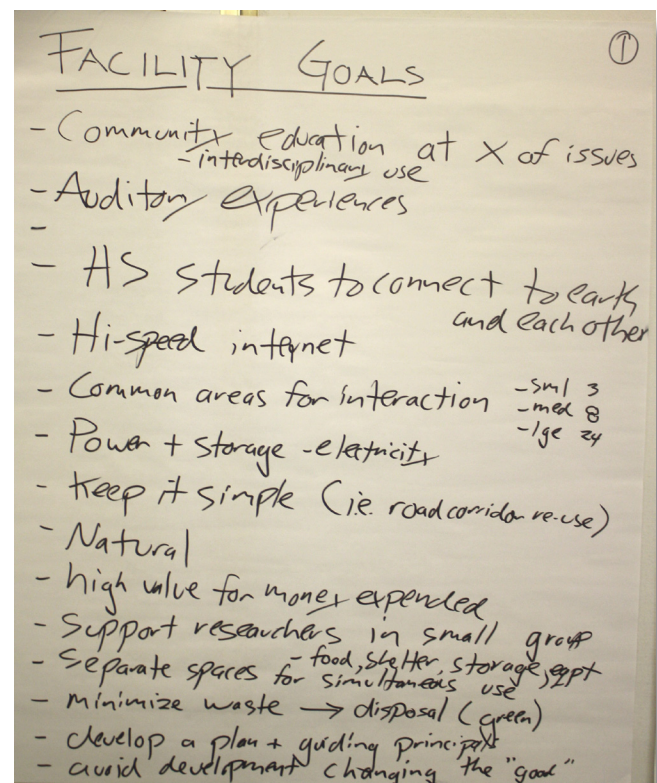 ①
FACILITY GOALS
- Community education at X of issues
- interdisciplinary use
- Auditory experiences
-
- HS students to connect to earth
and each other
- Hi-speed internet
- Common areas for interaction
- sml 3
- med 8
- lge 24
- Power + storage - electricity
- Keep it simple (i.e. road corridor re-use)
- Natural
- high value for money expended
- Support researchers in small group
- food, shelter, storage, eqpt
- Separate spaces for simultaneous use
- minimize waste → disposal (green)
- develop a plan + guiding principals
- avoid development changing the "good"